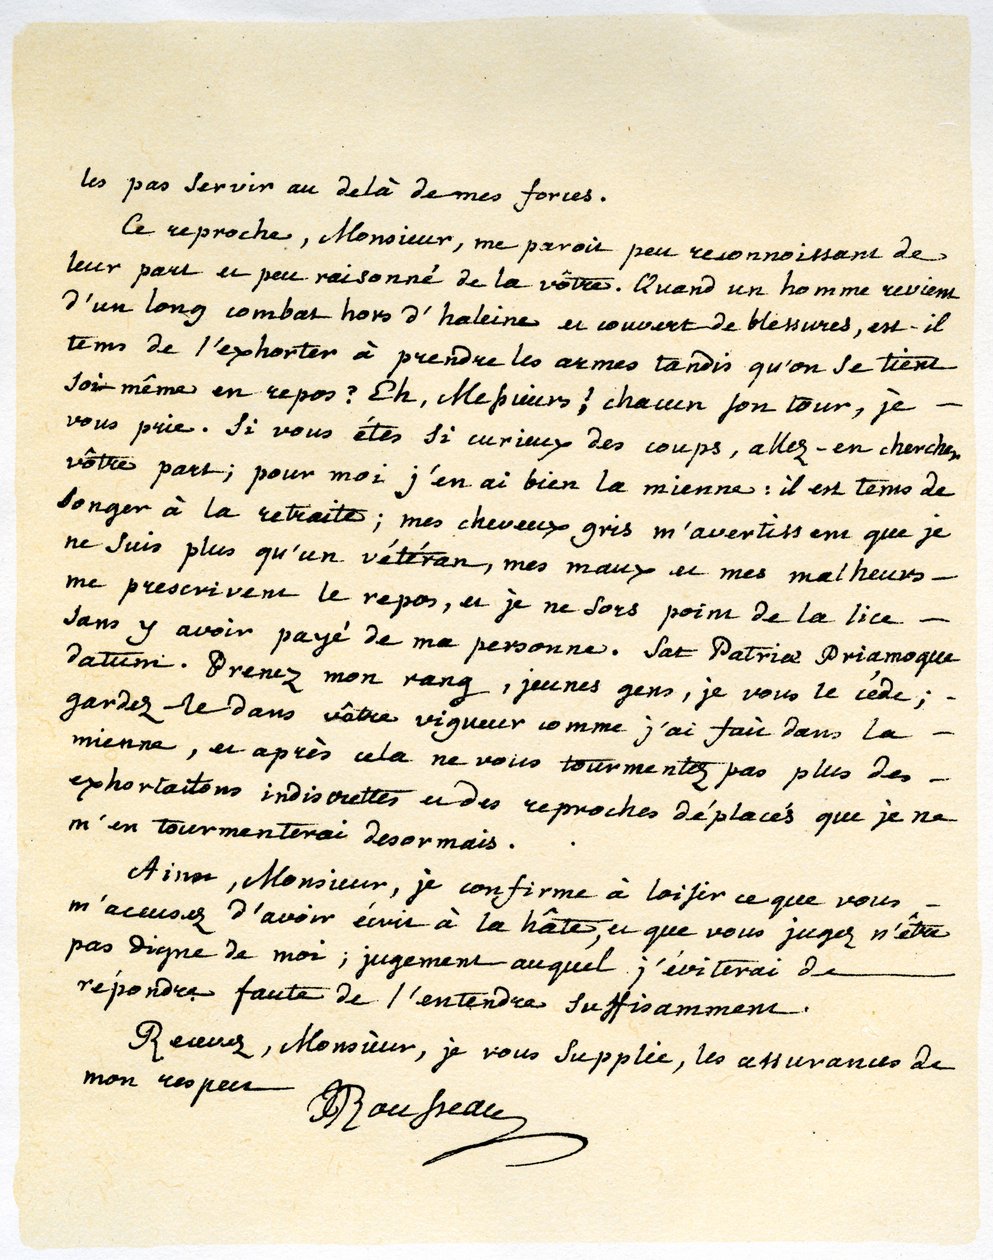 les pas servir au delà de mes forces.
Ce reproche, Monsieur, me paroit peu reconnoissant de
leur part et peu raisonné de la vôtre. Quand un homme revient
d'un long combat hors d'haleine et couvert de blessures, est-il
tems de l'exhorter à prendre les armes tandis qu'on se tient
soi-même en repos? Eh, Messieurs! chacun son tour, je –
vous prie. Si vous étes si curieux des coups, allez-en chercher
vôtre part; pour moi j'en ai bien la mienne: il est tems de
songer à la retraite; mes cheveux gris m'avertissent que je
ne suis plus qu'un vétéran, mes maux et mes malheurs –
me prescrivent le repos, et je ne sors point de la lice –
sans y avoir payé de ma personne. Sat Patriæ Priamoque
datum. Prenez mon rang, jeunes gens, je vous le céde; -
gardez-le dans vôtre vigueur comme j'ai fait dans la –
mienne, et après cela ne vous tourmentez pas plus des –
exhortaitons indiscrettes et des reproches déplacés que je ne
m'en tourmenterai desormais.
Ainsi, Monsieur, je confirme à loisir ce que vous –
m'accusez d'avoir écrit à la hâte, et que vous jugez n'être
pas digne de moi; jugement auquel j'éviterai de
répondre faute de l'entendre suffisamment.
Recevez, Monsieur, je vous supplie, les assurances de
mon respect
JJRousseau